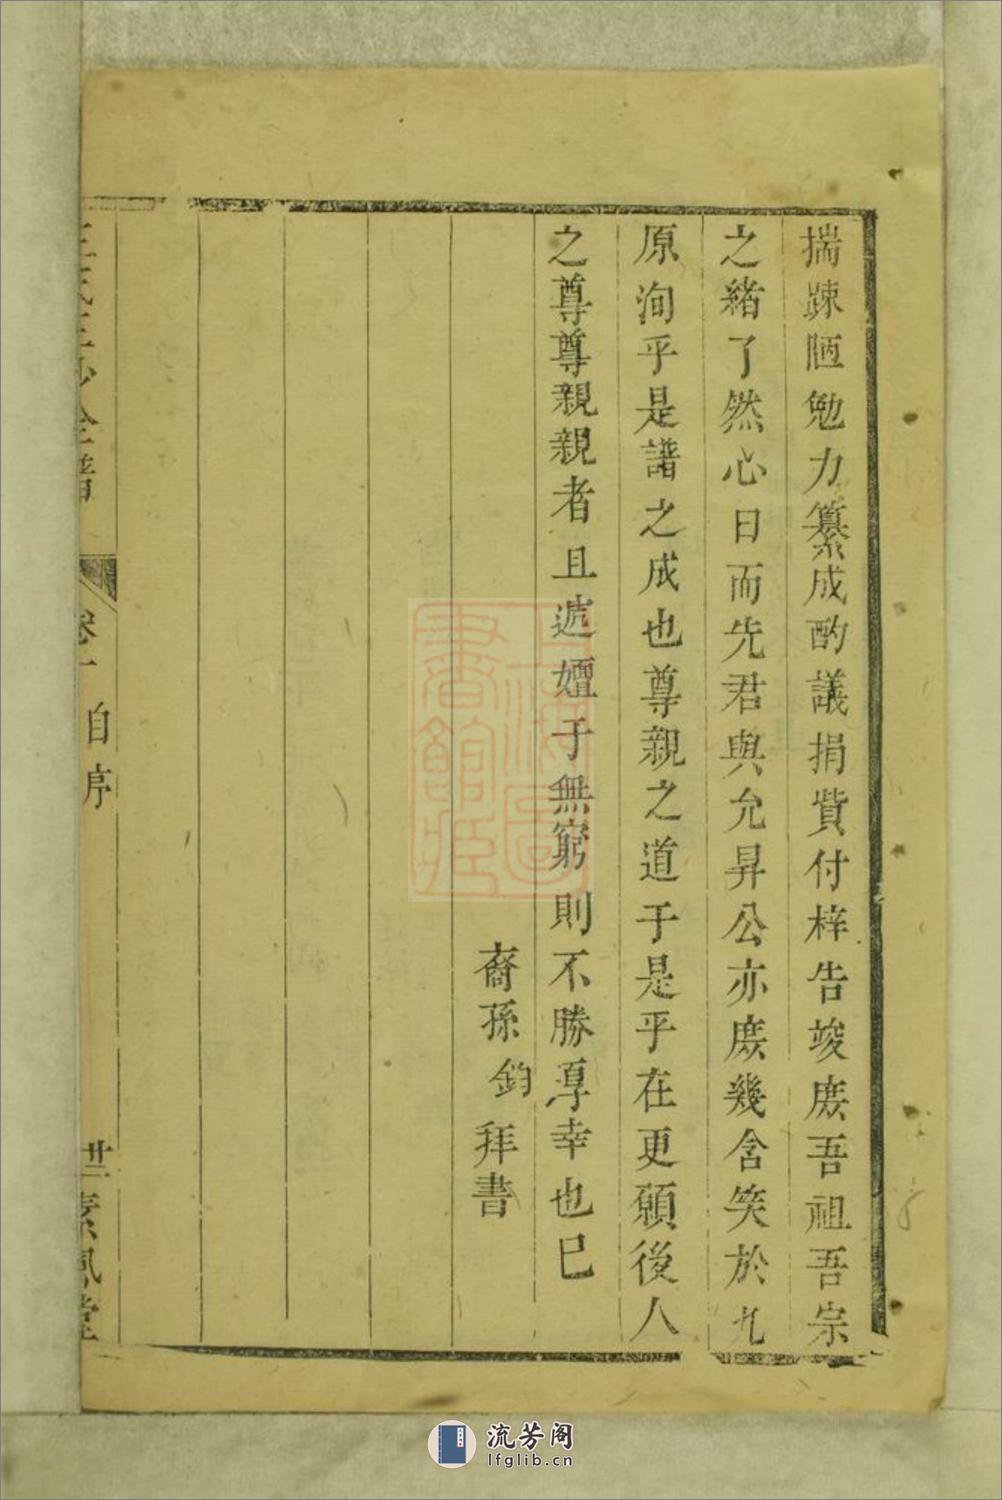 揣踈陋勉力纂成酌議捐貲付梓告竣庻吾祖吾宗
之緒了然心日而先君與允昇公亦庻幾含笑於九
原洵乎是譜之成也尊親之道于是乎在更願後人
之尊尊親親者且遞嬗于無窮則不勝厚幸也已
裔孫鈞拜書
王氏三沙全譜
卷一
自序
廿二
素風堂
上海圖書館藏
流芳阁
lfglib.cn